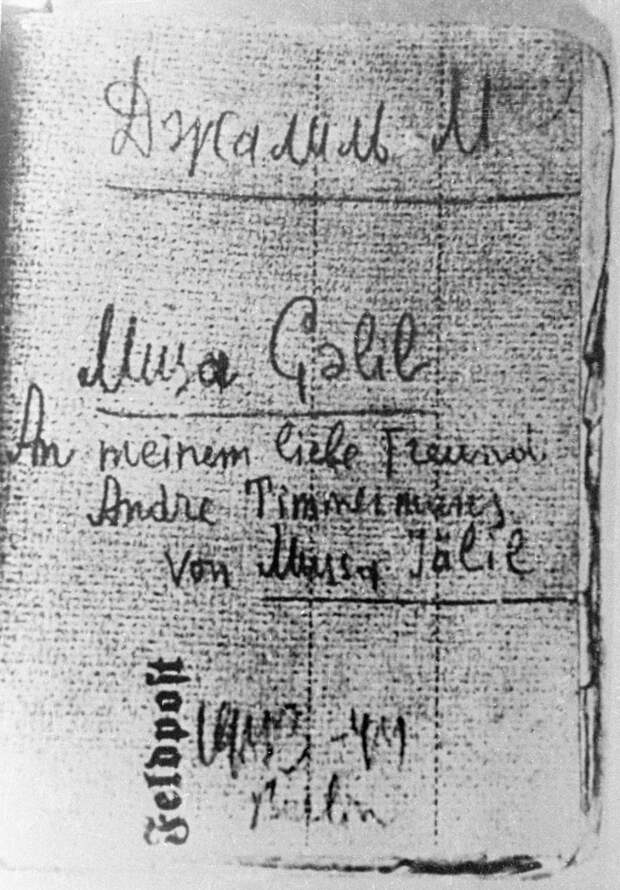 Джалиль М
Musa Çəlil
An meinem liebe Freund
Andre Timmermans
von Mussa Jälil
Feldpoſt
Berlin